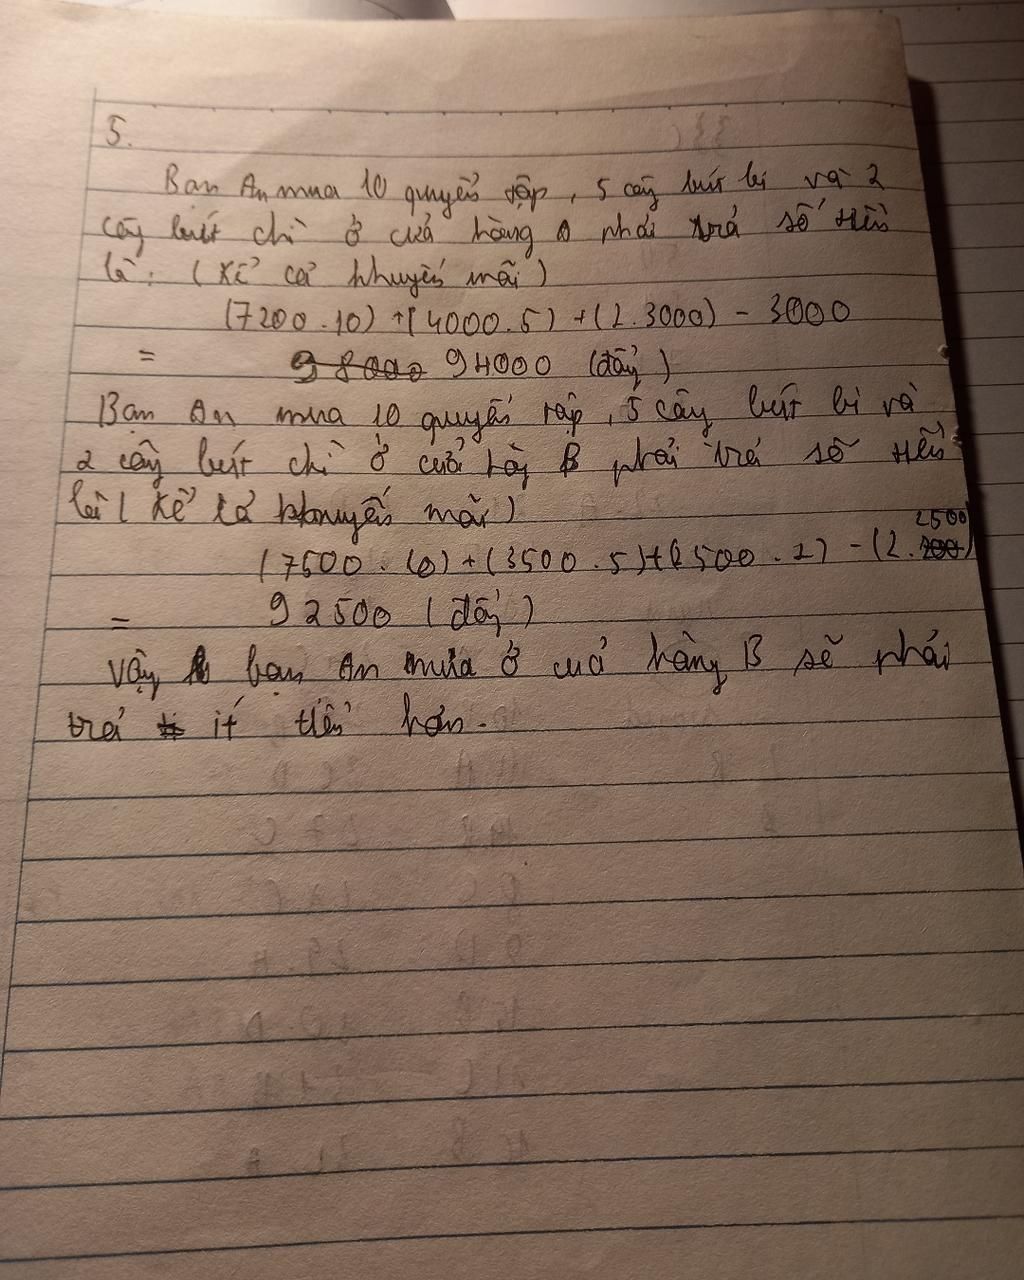 5.
Bạn An mua 10 quyển tập, 5 cây bút bi và 2
cây bút chì ở cửa hàng A phải trả số tiền
là: (Kể cả khuyến mãi)
(7200.10) + (4000.5) + (2.3000) - 3000
= 94000 (đồng)
Bạn An mua 10 quyển tập, 5 cây bút bi và
2 cây bút chì ở cửa hàng B phải trả số tiền
là (Kể cả khuyến mãi)
(7500.10) + (3500.5) + (2500.2) - (2.2500)
= 92500 (đồng)
Vậy bạn An mua ở cửa hàng B sẽ phải
trả ít tiền hơn.